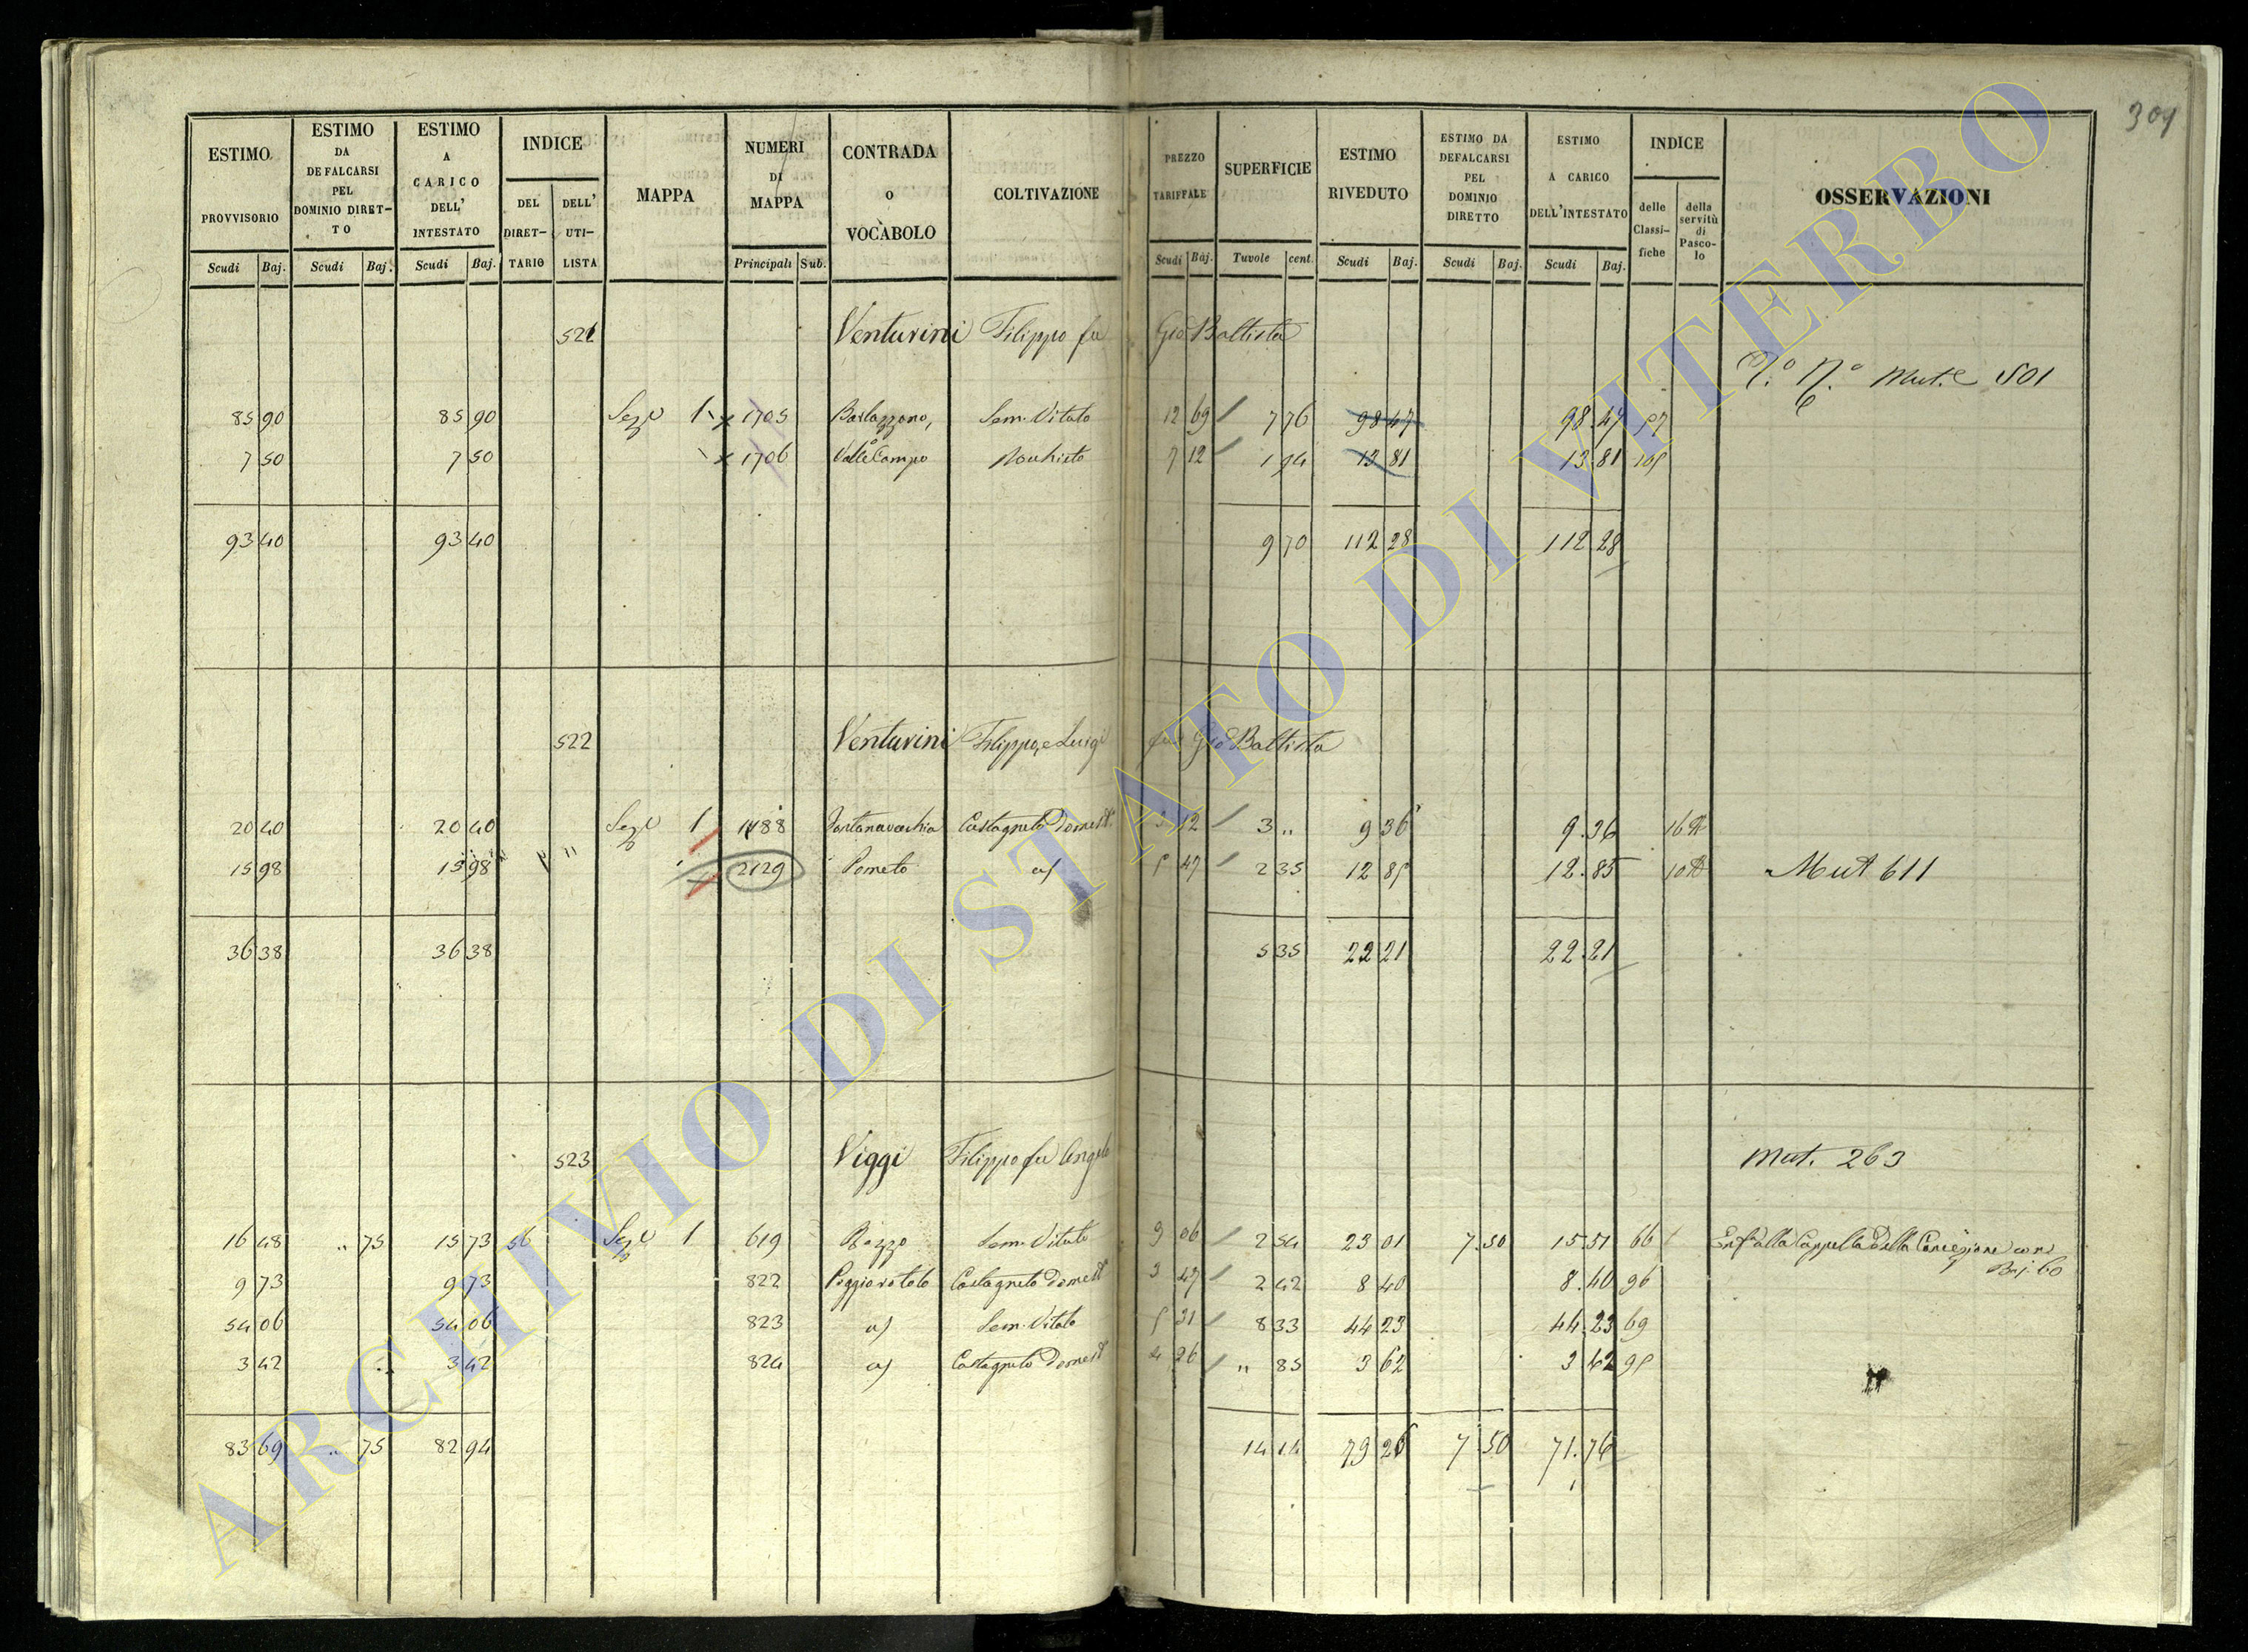 301
ESTIMO PROVVISORIO Scudi Baj.
ESTIMO DA DEFALCARSI PEL DOMINIO DIRETTO Scudi Baj.
ESTIMO A CARICO DELL' INTESTATO Scudi Baj.
INDICE DEL DIRETTARIO DELL' UTILISTA
MAPPA
NUMERI DI MAPPA Principali Sub.
CONTRADA o VOCABOLO
COLTIVAZIONE
PREZZO TARIFFALE Scudi Baj.
SUPERFICIE Tavole cent.
ESTIMO RIVEDUTO Scudi Baj.
ESTIMO DA DEFALCARSI PEL DOMINIO DIRETTO Scudi Baj.
ESTIMO A CARICO DELL'INTESTATO Scudi Baj.
INDICE delle Classifiche della servitù di Pascolo
OSSERVAZIONI
521 Venturini Filippo fu Gio Battista
Mut.e 501
85 90 85 90 Seze 1 1705 Sem. Vitato 12 69 7 76 98 47 98.47
7 50 7 50 1706 Valle Campo 7 12 1 94 13 81 13.81
93 40 93 40 9 70 112 28 112 28
522 Venturini Filippo, e Luigi fu Gio Battista
20 40 20 40 Seze 1 1188 Fontanavechia Castagneto Domest. 3 12 3 " 9 36 9.36
15 98 15 98 2129 Pometo a/ 5 47 2 35 12 85 12.85 Mut 611
36 38 36 38 5 35 22 21 22.21
523 Viggi Filippo fu Angelo Mut. 263
16 48 " 75 15 73 56 Seze 1 619 Pozzo Sem. Vitato 9 06 2 54 23 01 7.50 15.51 66 Enf. alla Cappella della Concezione
Baj. 60
9 73 9 73 822 Poggiorotolo Castagneto Domest. 3 47 2 42 8 40 8.40 96
54 06 54 06 823 a/ Sem. Vitato 5 31 8 33 44 23 44.23 69
3 42 3 42 824 a/ Castagneto Domest. 4 26 " 85 3 62 3 62 95
83 69 " 75 82 94 14 14 79 26 7 50 71.76
ARCHIVIO DI STATO DI VITERBO